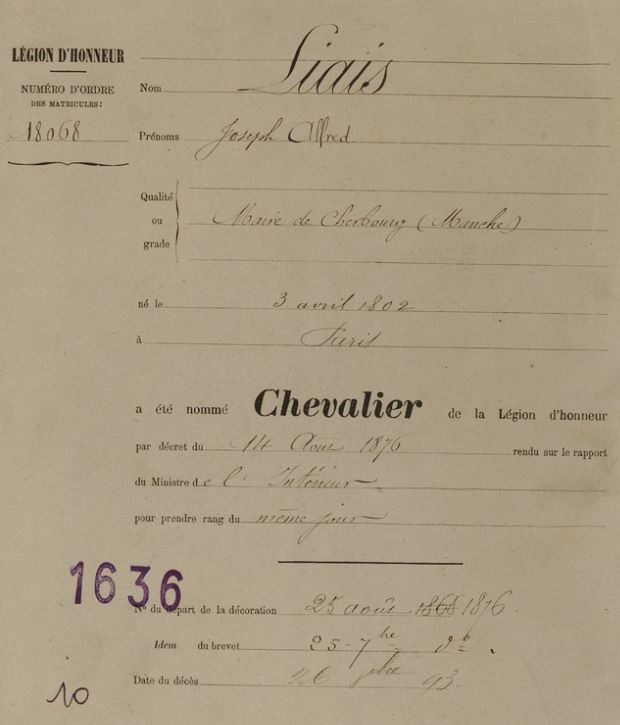 LÉGION D'HONNEUR
NUMÉRO D'ORDRE
DES MATRICULES:
18068
Nom Liais
Prénoms Joseph Alfred
Qualité
ou Maire de Cherbourg (Manche)
grade
né le 3 avril 1802
à Paris
a été nommé Chevalier de la Légion d'honneur
par décret du 14 Aout 1876 rendu sur le rapport
du Ministre de l'Intérieur
pour prendre rang du même jour
1636
N° du départ de la décoration 25 août 1868 1876
Idem du brevet 25 - 7bre do
Date du décès 26 93
10